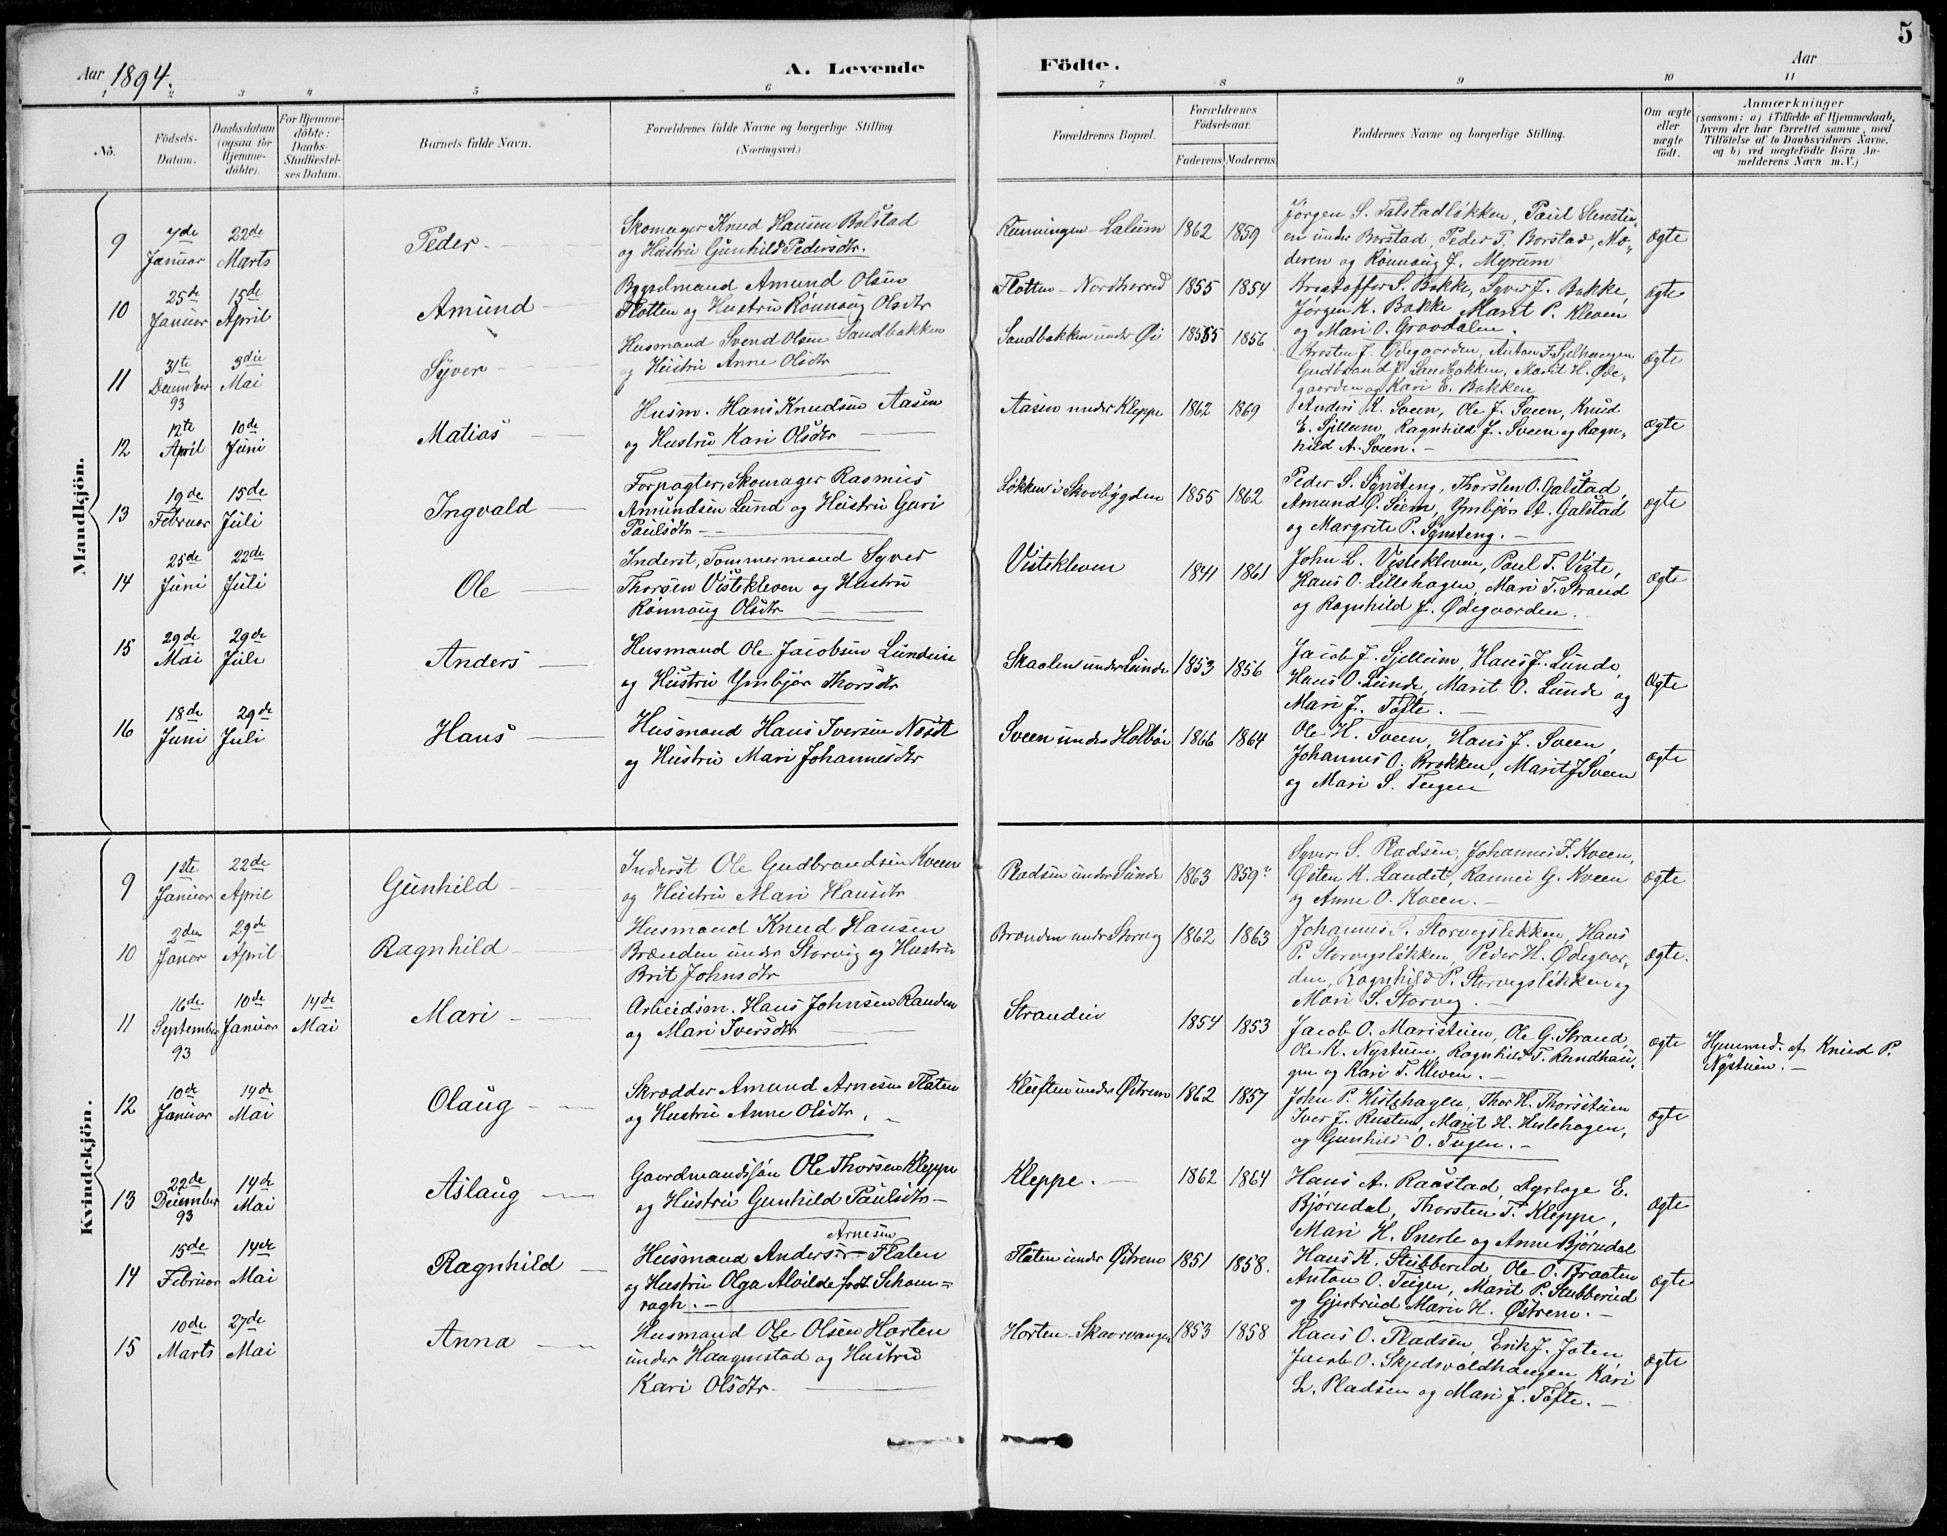 5
Aar 1894. A. Levende Födte. Aar
1 2 3 4 5 6 7 8 9 10 11
No. Födsels-Datum. Daabsdatum (ogsaa for Hjemme-döbte). For Hjemme-döbte: Daabs-Stadfæstel-ses Datum. Barnets fulde Navn. Forældrenes fulde Navne og borgerlige Stilling. (Næringsvei.) Forældrenes Bopæl. Forældrenes Födselsaar. Faderens. Moderens. Faddernes Navne og borgerlige Stilling. Om ægte eller uægte födt. Anmærkninger
(saasom: a) i Tilfælde af Hjemmedaab, hvem der har forrettet samme, med Tilföielse af to Daabsvidners Navne, og b) ved uægtefödte Börn Anmelderens Navn m. V.)
Mandkjön.
9 7de Januar 22de Marts Peder
Skomager Knud Hansen Bolstad
og Hustru Gunhild Pedersdtr.
Lalum 1862 1859
Jørgen S. Talstadløkken, Paul
en under Borstad, Peder T. Borstad, Mo-
deren og Rønnaug J. Myrum
ægte
10 25de Januar 15de April Amund
Bygselmand Amund Olsen
Flotten og Hustru Rønnaug Olsdtr
Flotten - Nordherred 1855 1854
Kristoffer S. Bakke, Syver J. Bakke,
Jørgen K. Bakke Marit P. Kleven
og Mari O. Gravdalen.
ægte
11 31te December 93 3die Mai Syver
Husmand Svend Olsen Sandbakken
og Hustru Anne Olsdtr
Sandbakken under Øi 1855 1856
Kristen J. Ødegaarden, Anton F. Sjelhaugen
Gudbrand J. Sandbakken, Marit H. Øde-
gaarden og Kari E. Bakken
ægte
12 12te April 10de Juni Matias
Husm. Hans Knudsen Aasen
og Hustru Kari Olsdtr
Aasen under Kleppe 1862 1869
Anders K. Sveen, Ole J. Sveen, Knud
E. Sjellum, Ragnhild J. Sveen og Ragn-
hild A. Sveen.
ægte
13 19de Februar 15de Juli Ingvald
Forpagter, Skomager Rasmus
Amundsen Lund og Hustru Guri
Paulsdtr
Løkken i Skovbygden 1855 1862
Peder S. Synsteng, Thorsten O. Galstad,
Amund Ø. Siem, Ymbjør A. Galstad
og Margrite P. Synsteng.
ægte
14 25de Juni 22de Juli Ole
Inderst, Tømmermand Syver
Thorsen Vistekleven og Hustru
Rønnaug Olsdtr
Vistekleven 1841 1861
John L. Vistekleven, Paul T. Viste,
Hans O. Lillehagen, Mari T. Strand
og Ragnhild J. Ødegaarden.
ægte
15 29de Mai 29de Juli Anders
Husmand Ole Jacobsen Lundeie
og Hustru Ymbjør Thorsdtr
Skaalen under Lunde 1853 1856
Jacob J. Sjellum, Hans J. Lunde,
Hans O. Lunde, Marit O. Lunde og
Mari J. Tofte.
ægte
16 18de Juni 29de Juli Hans
Husmand Hans Iversen
og Hustru Mari Johannesdtr
Sveen under Holbø 1866 1864
Ole H. Sveen, Hans J. Sveen,
Johannes O. Brokken, Marit J Sveen
og Mari S. Teigen
ægte
Kvindekjön.
9 1ste Januar 22de April Gunhild
Inderst Ole Gudbrandsen Kveen
og Hustru Mari Hansdtr
Pladsen under Lunde 1863 1859
Syver S. Pladsen, Johannes F. Kveen,
Østen K. Landet, Rannei G. Kveen
og Anne O. Kveen.
ægte
10 2den Januar 29de April Ragnhild
Husmand Knud Hansen
Brænden under Storvig og Hustru
Brit Johnsdtr
Brænden under Storvig 1862 1863
Johannes S. Storvigsløkken, Hans
P. Storvigsløkken, Peder H. Ødegaar-
den, Ragnhild P. Storvigsløkken og
Mari S. Storvig.
ægte.
11 16de September 93 10de Januar 14de Mai Mari
Arbeidsm. Hans Johnsen Randen
og Mari Iversdtr
Strandeie 1854 1853
Jacob O. Maristuen, Ole G. Strand,
Ole K. Nystuen, Ragnhild T. Rundhau-
gen og Kari T. Kleven.
ægte
Hjemmed. af Knud P.
Nystuen.
12 10de Januar 14de Mai Olaug
Skrædder Amund Arnesen Flaten
og Hustru Anne Olsdtr.
Kleiften under Østrem 1862 1857
John P. Histehagen, Thor H. Thorsstuen
Iver J. Rusten, Marit H. Heslehagen,
og Gunhild O. Teigen.
ægte
13 22de December 93 14de Mai Aslaug
Gaardmandssøn Ole Thorsen Kleppe
og Hustru Gunhild Paulsdtr
Kleppe. 1862 1864
Hans A. Raastad, Dyrlæge E.
Bjørndal, Thorsten T. Kleppe,
Mari H. Snerle og Anne Bjørndal
ægte
14 15de Februar 14de Mai Ragnhild
Arnesen
Husmand Anders Flaten
og Hustru Olga Alvilde født Scham-
ragh.
Flaten under Østrem 1851 1858.
Hans K. Stubberud, Ole O. Braaten
Anton O. Teigen, Marit P. Stubberud
og Gjertrud Marie H. Østrem.
ægte
15 10de Marts 27de Mai Anna
Husmand Ole Olsen Horten
under Haagenstad og Hustru
Kari Olsdtr.
Horten - Skaarvangen 1853 1858
Hans O. Pladsen, Erik J. Joten
Jacob O. Skjedsvoldhaugen, Kari
L. Pladsen og Mari J. Tofte.
ægte